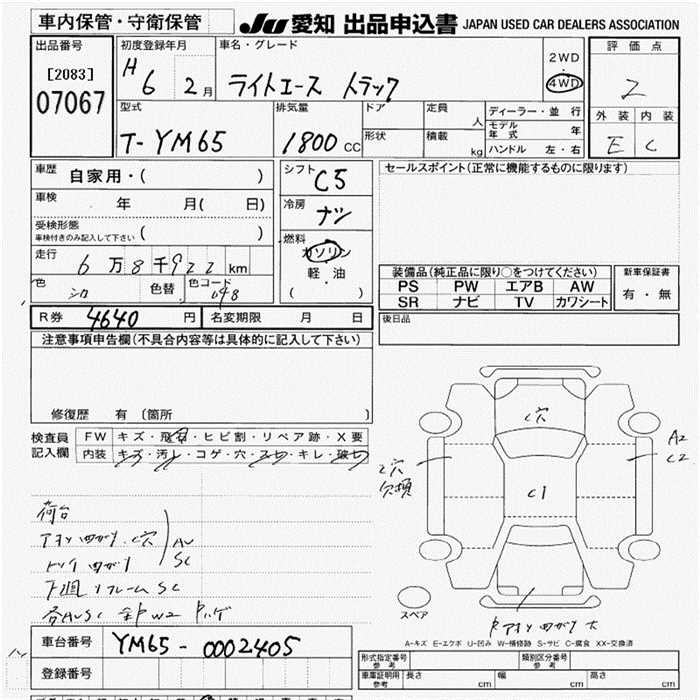 車内保管・守衛保管
JU 愛知 出品申込書 JAPAN USED CAR DEALERS ASSOCIATION
出品番号
[2083]
07067
初度登録年月
H 6 2月
車名・グレード
ライトエース トラック
2WD
・
4WD
評価点
2
外装 内装
E C
型式
T-YM65
排気量
1800 cc
ドア
形状
定員 人
積載 kg
ディーラー・並行
モデル年式 年
ハンドル 左・右
車歴 自家用・( )
車検 年 月( 日)
受検形態
車検付きのみ記入して下さい ( )
走行 6万8千922 km
色 シロ 色替 色コード 048
シフト C5
冷房 ナシ
燃料
ガソリン
軽・油
( )
セールスポイント(正常に機能するものに限ります)
装備品(純正品に限り○をつけてください)
PS PW エアB AW
SR ナビ TV カワシート
新車保証書
有・無
R券 4640 円 名変期限 月 日
後日品
注意事項申告欄(不具合内容等は具体的に記入して下さい)
修復歴 有 〔箇所 〕
検査員記入欄
FW キズ・飛石・ヒビ割・リペア跡・X要
内装 キズ・汚レ・コゲ・穴・スレ・キレ・破レ
荷台
アオリ凹ガリ・C穴
AU
SC
下廻リフレームSC
C穴
A2
C2
C穴
欠損
C1
スペア
Rアオリ凹ガリ大
A-キズ E-エクボ U-凹み W-補修跡 S-サビ C-腐食 XX-交換済
車台番号 YM65-0002405
登録番号
形式指定番号
参考
類別区分番号
参考
車庫証明用
参考
長さ cm 幅 cm 高さ cm